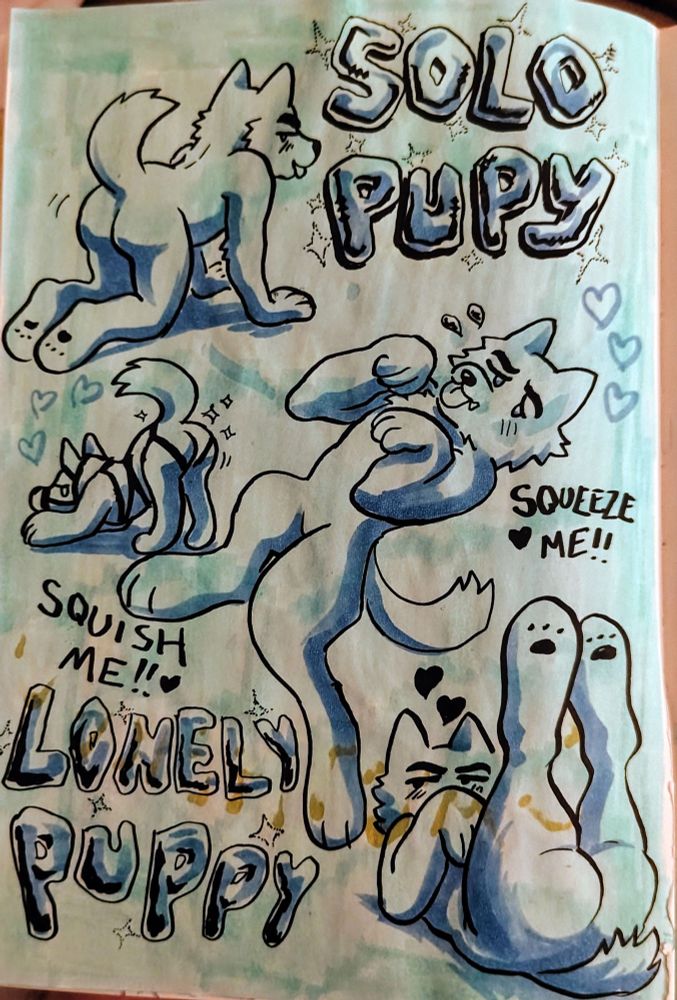 SOLO
PUPY
SQUEEZE
ME!!
SQUISH
ME!!
LONELY
PUPPY